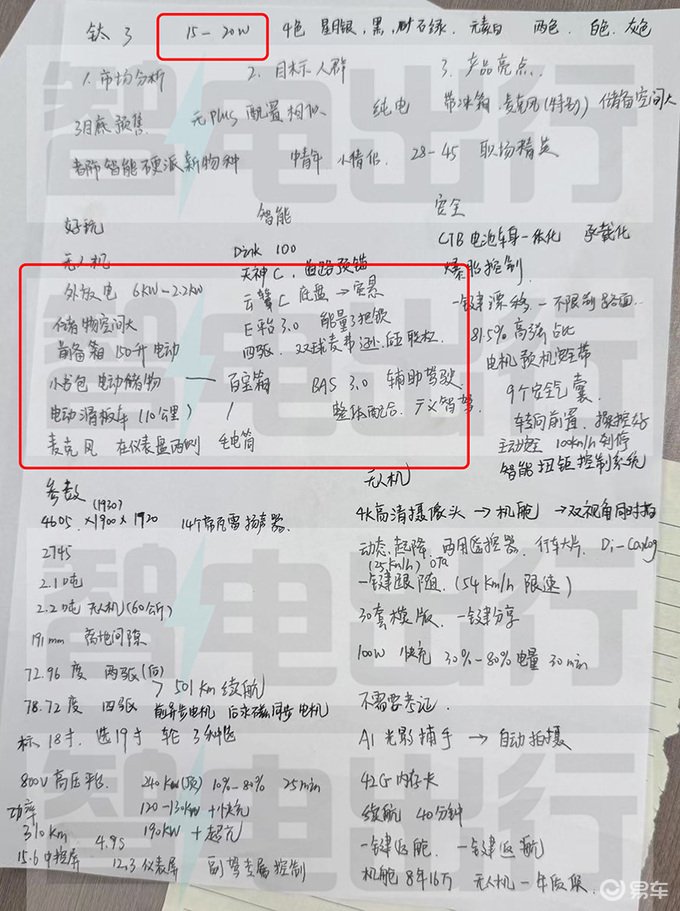 钛3 15-20W 4色 星月银,黑,砂石绿. 元素白 两色. 白色. 灰色
1.市场分析 2.目标人群 3.产品亮点..
纯电 带冰箱.麦克风(特别) 储备空间大
3月底预售 元PLUS配置相似.
者称智能硬派新物种 中青年 小情侣. 28-45 职场精英
好玩 智能 安全
无人机 Dink 100 CTB电池车身一体化 承载化
天神C. 爆胎控制
外放电 6KW-2.2KW 云辇C底盘→实景 一键漂移.一不限制路面..
储物空间大 E平台3.0 能量3把锁 81.5%高强占比
前备箱 150升电动 四驱.
小书包 电动储物 —— 百宝箱 BAS 3.0 辅助驾驶. 9个安全气囊
电动滑板车(10公里) / 整体配合.
麦克风 在仪表盘两侧 手电筒 主动安全 100km/h刹停
智能扭矩控制系统
参数 无人机
(1930)
4605.×1900×1920 14个帝瓦雷扬声器. 4K高清摄像头→机舱→双视角同时拍
2745 动态,起降.两用遥控器.行车大片.
(25Km/h) OTA
2.1吨 一键跟随.(54Km/h 限速)
2.2吨 无人机(60公斤) 30套模版.一键分享
191mm 离地间隙 100W 快充 30%-80%电量 30min
72.96度 两驱(后)
> 501Km续航
78.72度 四驱 前异步电机 后永磁同步电机 不需要考证.
标18寸.选19寸 轮 3种选 AI光影捕手→自动拍摄
800V高压平台. 240Kw(顶) 10%-80% 25min 42G内存卡
功率 120-130Kw+快充 续航 40分钟
310km 4.9S 190KW+超充 一键返舱. 一键返航
15.6中控屏 12.3仪表屏 副驾专属控制 机舱8年16万 无人机一年质保.
智电出行
智电出行
智电出行
智电出行
易车